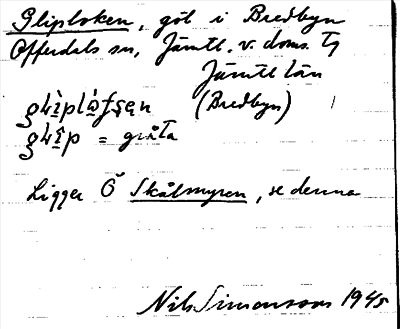 Gliploken, göl i Bredbyn
Offerdals sn, Jämtl. v. doms. Tg
Jämtl län
(Bredbyn)
= gråta
Ligger Ö Skålmyren, se denna
Nils Simonsson 1945